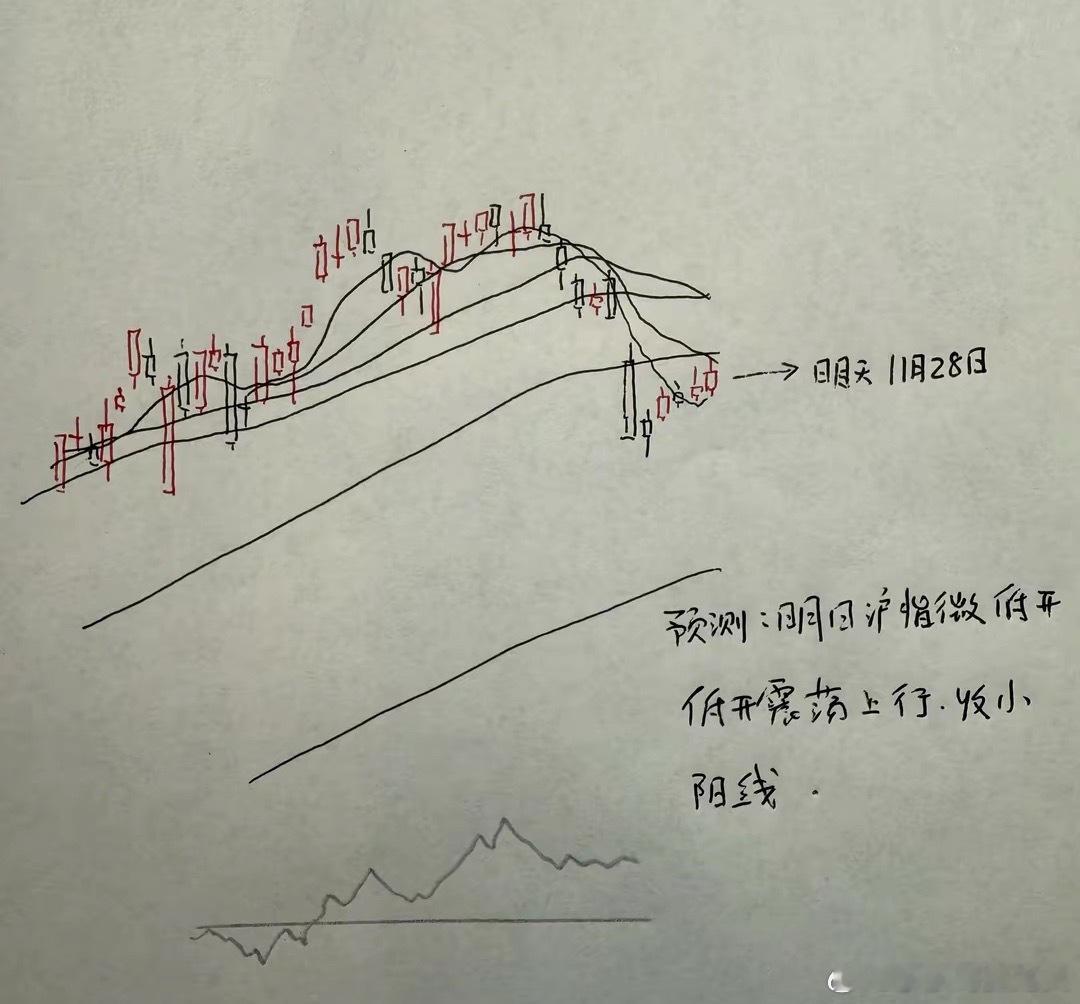 → 明天 11月28日
预测:明日沪指微低开
低开震荡上行.收小
阳线.